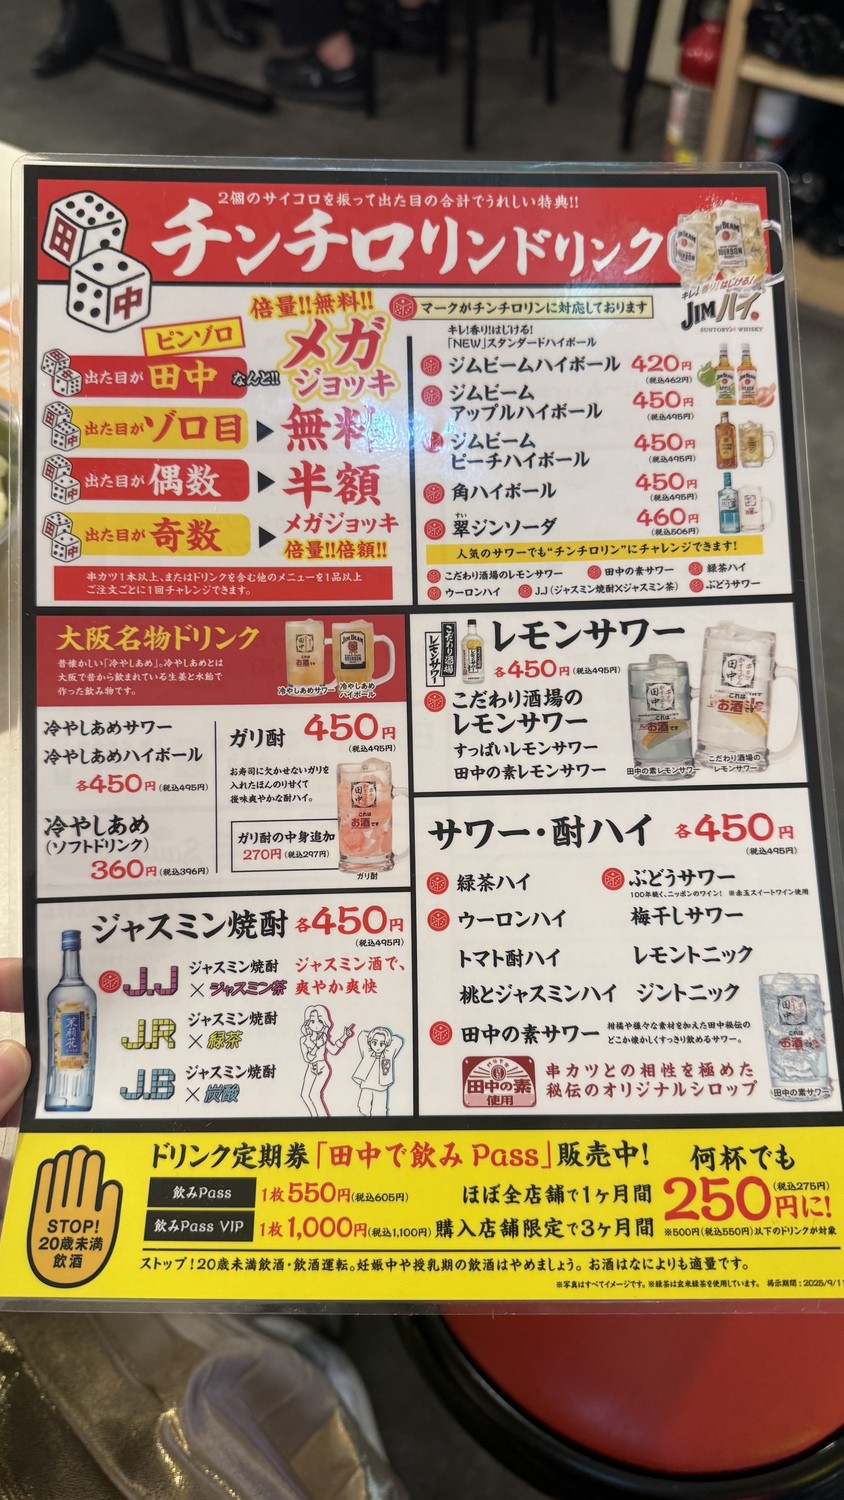 2個のサイコロを振って出た目の合計でうれしい特典!!
チンチロリンドリンク
田
中
キレ!香り!はじける!
JIMハイ。
SUNTORY WHISKY
倍量!!無料!!
メガ
ジョッキ
ピンゾロ
出た目が 田中 なんと!!
出た目が ゾロ目 ▶ 無料
出た目が 偶数 ▶ 半額
出た目が 奇数 ▶ メガジョッキ
倍量!!倍額!!
串カツ1本以上、またはドリンクを含む他のメニューを1品以上
ご注文ごとに1回チャレンジできます。
マークがチンチロリンに対応しております
キレ!香り!はじける!
「NEW」スタンダードハイボール
ジムビームハイボール 420円
(税込462円)
ジムビーム
アップルハイボール 450円
(税込495円)
ジムビーム
ピーチハイボール 450円
(税込495円)
角ハイボール 450円
(税込495円)
翠ジンソーダ 460円
すい
(税込506円)
人気のサワーでも"チンチロリン"にチャレンジできます!
こだわり酒場のレモンサワー 田中の素サワー 緑茶ハイ
ウーロンハイ J.J(ジャスミン焼酎×ジャスミン茶) ぶどうサワー
大阪名物ドリンク
昔懐かしい「冷やしあめ」。冷やしあめとは
大阪で昔から飲まれている生姜と水飴で
作った飲み物です。
冷やしあめサワー
冷やしあめ
ハイボール
冷やしあめサワー
冷やしあめハイボール
各450円(税込495円)
冷やしあめ
(ソフトドリンク)
360円(税込396円)
ガリ酎 450円
(税込495円)
お寿司に欠かせないガリを
入れたほんのり甘くて
後味爽やかな酎ハイ。
ガリ酎の中身追加
270円(税込297円)
田中
これは
お酒です
ガリ酎
こだわり酒場
レモンサワー
レモンサワー
各450円(税込495円)
こだわり酒場の
レモンサワー
すっぱいレモンサワー
田中の素レモンサワー
田中の素レモンサワー
こだわり酒場の
レモンサワー
ジャスミン焼酎 各450円
(税込495円)
茉莉花
J.J ジャスミン焼酎
×ジャスミン茶
ジャスミン酒で、
爽やか爽快
J.R ジャスミン焼酎
×緑茶
J.B ジャスミン焼酎
×炭酸
サワー・酎ハイ 各450円
(税込495円)
緑茶ハイ
ぶどうサワー
100年続く、ニッポンのワイン! ※赤玉スイートワイン使用
ウーロンハイ
梅干しサワー
トマト酎ハイ
レモントニック
桃とジャスミンハイ
ジントニック
田中の素サワー
柑橘や様々な素材を加えた田中秘伝の
どこか懐かしくすっきり飲めるサワー。
田中の素
使用
串カツとの相性を極めた
秘伝のオリジナルシロップ
田中の素サワー
STOP!
20歳未満
飲酒
ドリンク定期券「田中で飲みPass」販売中!
飲みPass 1枚550円(税込605円) ほぼ全店舗で1ヶ月間
飲みPass VIP 1枚1,000円(税込1,100円) 購入店舗限定で3ヶ月間
何杯でも
250円に!
(税込275円)
※500円(税込550円)以下のドリンクが対象
ストップ!20歳未満飲酒・飲酒運転。妊娠中や授乳期の飲酒はやめましょう。お酒はなによりも適量です。
※写真はすべてイメージです。※緑茶は玄米緑茶を使用しています。 掲示期間:2025/9/11